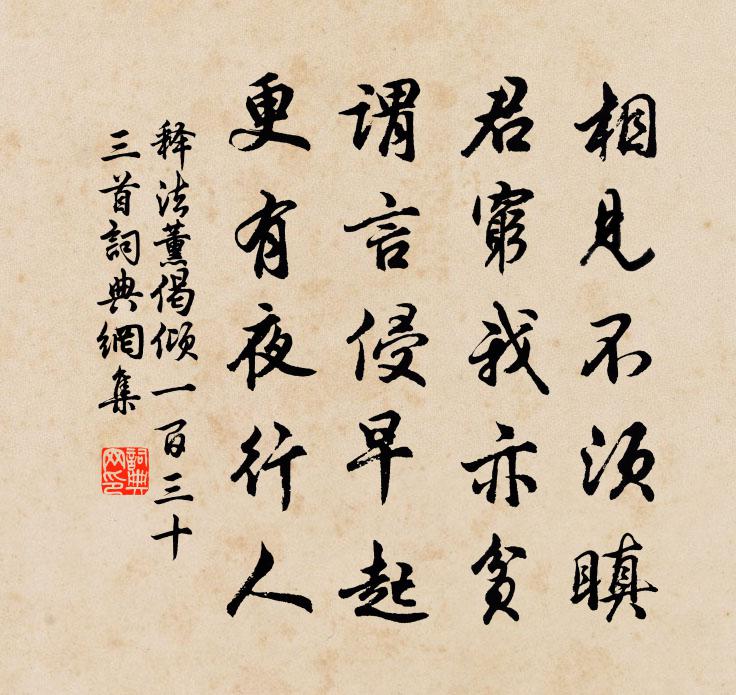 相見不須瞋
君窮我亦貧
謂言侵早起
更有夜行人
释法薰偈颂一百三十
三首詞典網集
詞典
网印